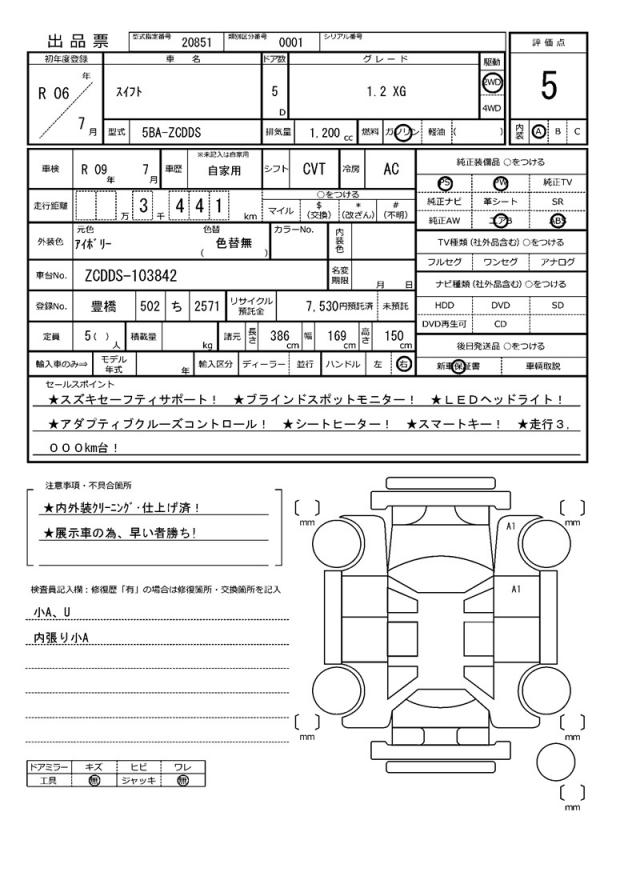 出品票 型式指定番号 20851 類別区分番号 0001 シリアル番号
評価点
5
内装 A B C
初年度登録 車名 ドア数 グレード 駆動
R 06 年 7 月 スイフト 5 D 1.2 XG 2WD 4WD
型式 5BA-ZCDDS 排気量 1.200 cc 燃料 ガソリン 軽油 ( )
車検 R 09 年 7 月 車歴 ※未記入は自家用 自家用 シフト CVT 冷房 AC
走行距離 万 3 千 4 4 1 km ○をつける マイル $ (交換) * (改ざん) # (不明)
外装色 元色 アイボリー 色替 色替無 ( ) カラーNo. 内装色
車台No. ZCDDS-103842 名変期限 月 日
登録No. 豊橋 502 ち 2571 リサイクル預託金 7,530円預託済 未預託
定員 5( ) 人 積載量 kg 諸元 長さ 386 cm 幅 169 cm 高さ 150 cm
輸入車のみ⇒ モデル年式 年 輸入区分 ディーラー 並行 ハンドル 左 右
純正装備品 ○をつける
PS PW 純正TV
純正ナビ 革シート SR
純正AW エアB ABS
TV種類 (社外品含む) ○をつける
フルセグ ワンセグ アナログ
ナビ種類 (社外品含む) ○をつける
HDD DVD SD
DVD再生可 CD
後日発送品 ○をつける
新車保証書 車輌取説
セールスポイント
★スズキセーフティサポート! ★ブラインドスポットモニター! ★LEDヘッドライト!
★アダプティブクルーズコントロール! ★シートヒーター! ★スマートキー! ★走行3,
000km台!
注意事項・不具合箇所
★内外装クリーニング・仕上げ済!
★展示車の為、早い者勝ち!
検査員記入欄:修復歴「有」の場合は修復箇所・交換箇所を記入
小A、U
内張り小A
ドアミラー キズ ヒビ ワレ
工具 無 ジャッキ 無
[ ] mm
[ ] mm
A1
A1
[ ] mm
[ ] mm
[ ] mm